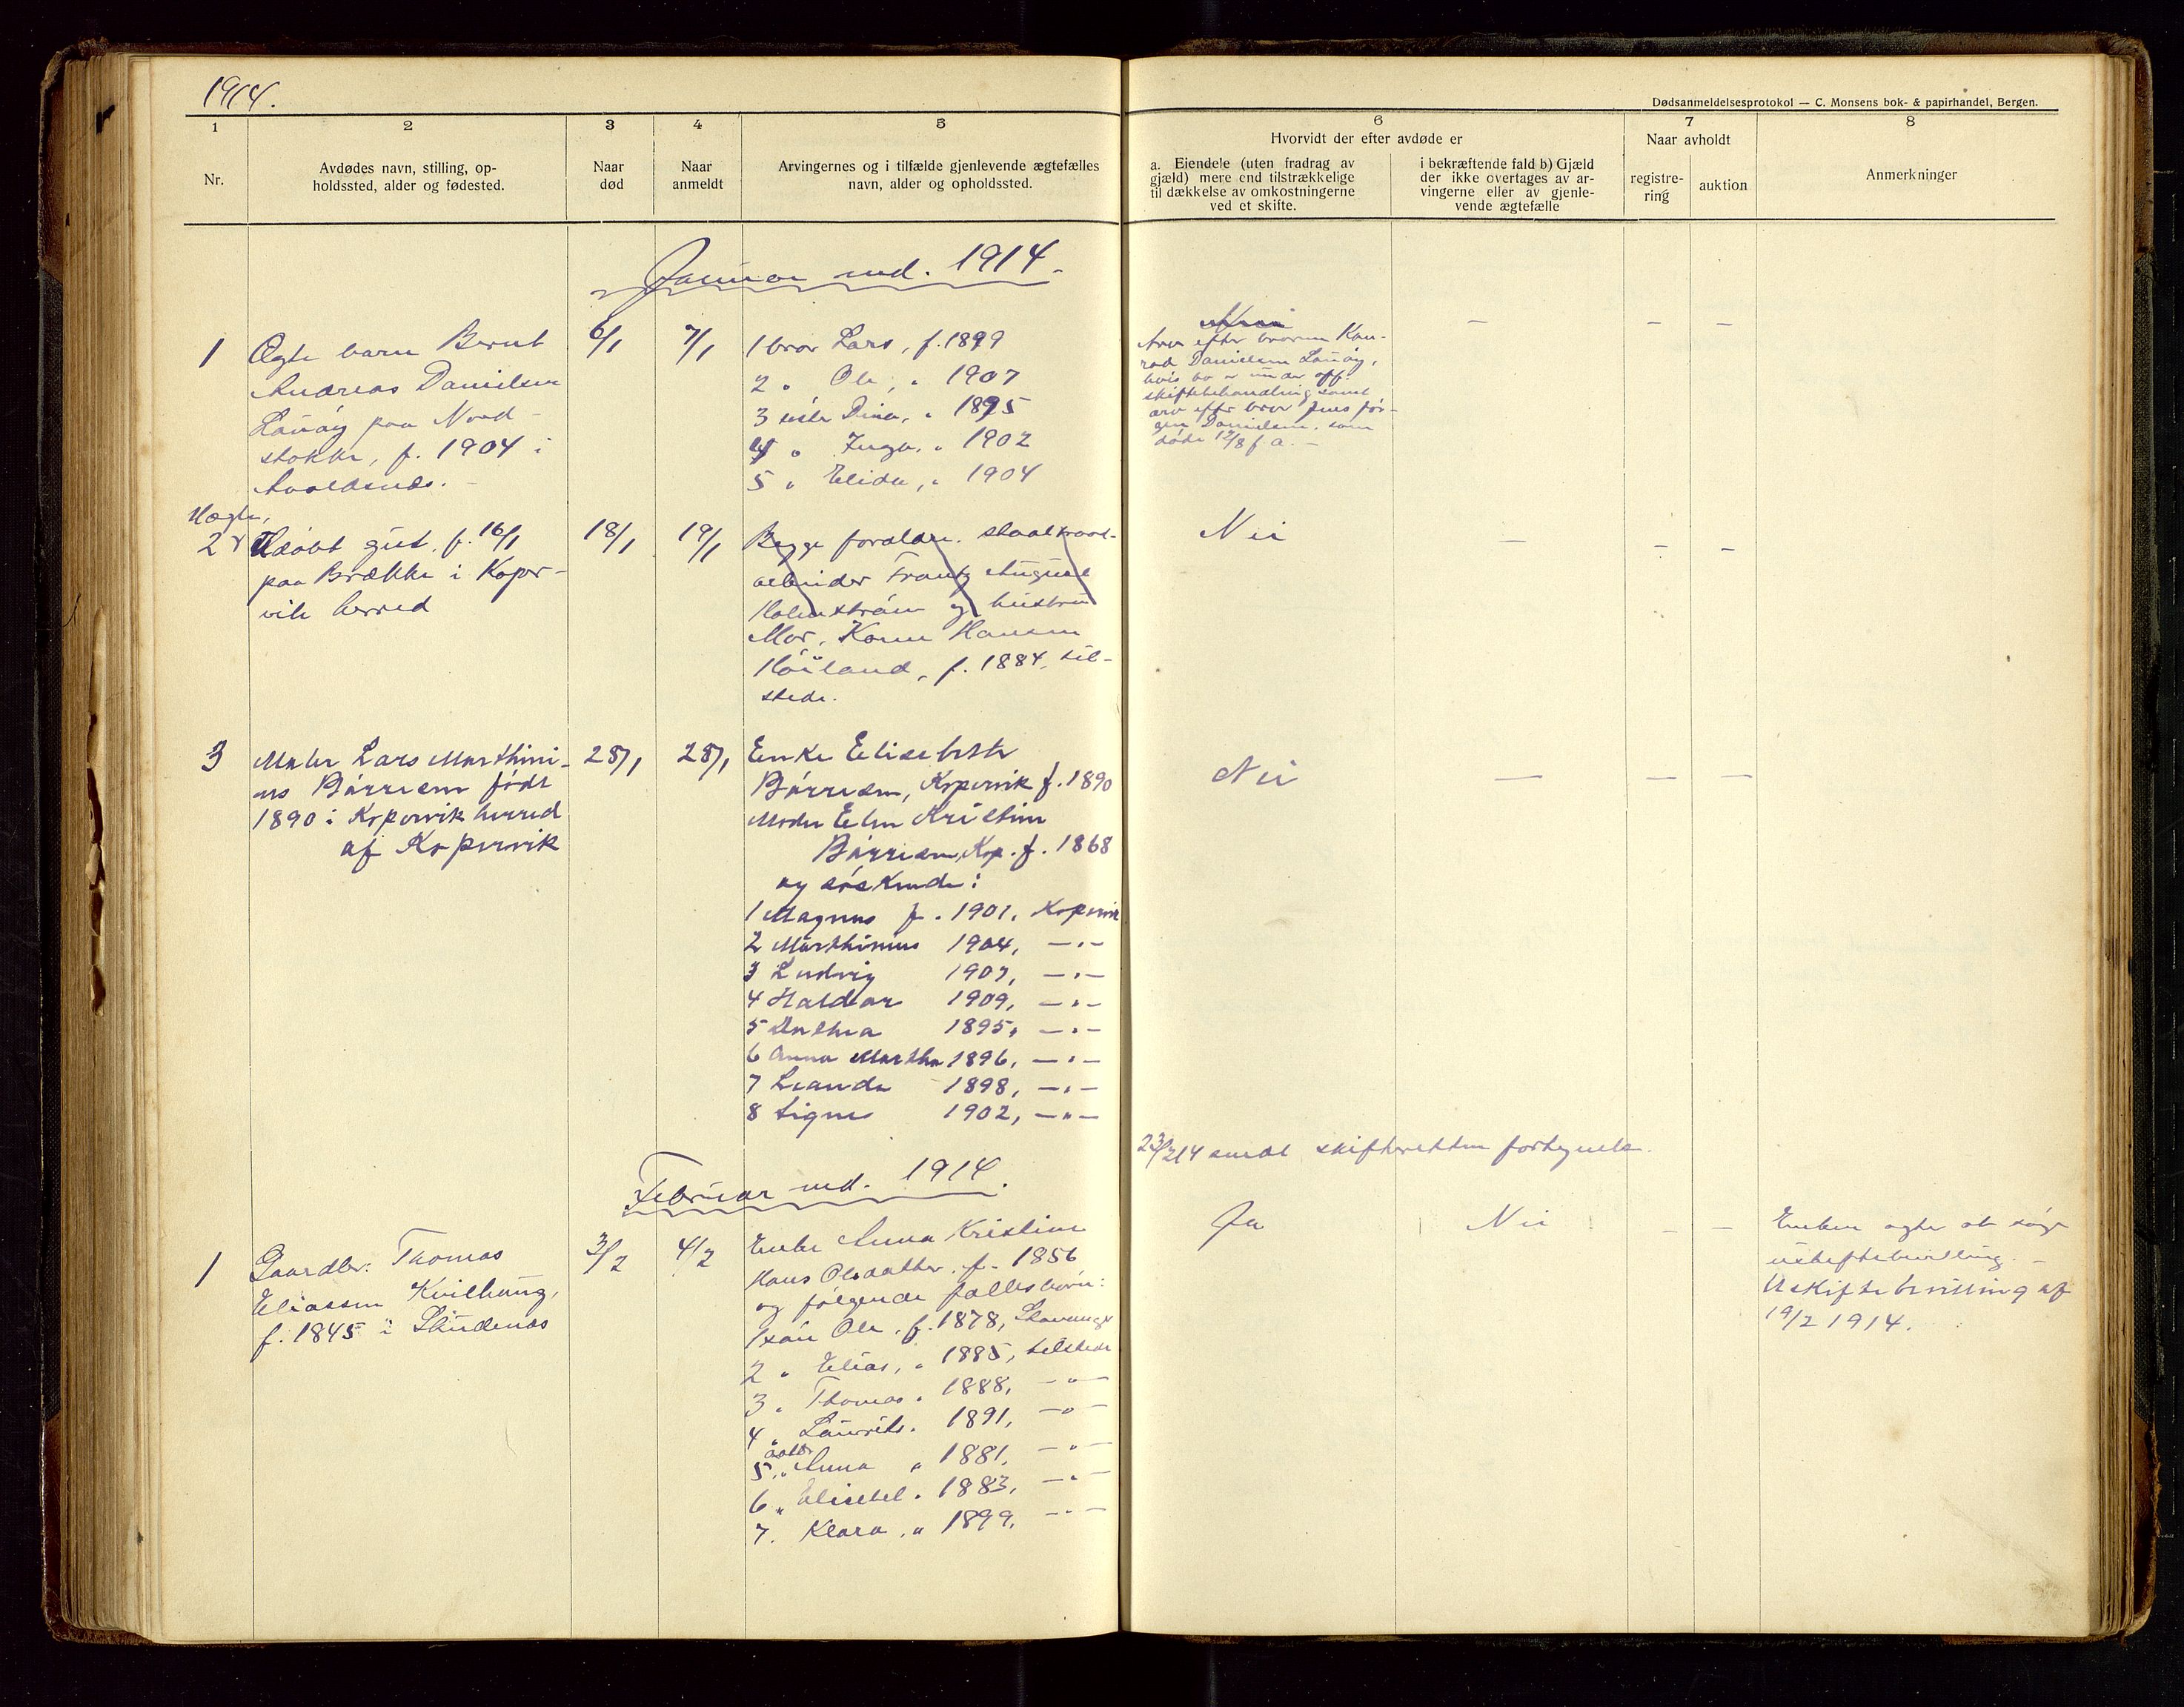 1914.
Dødsanmeldelsesprotokol — C. Monsens bok- & papirhandel, Bergen.
1
2
3
4
5
6
7
8
Nr.
Avdødes navn, stilling, op-
holdssted, alder og fødested.
Naar
død
Naar
anmeldt
Arvingernes og i tilfælde gjenlevende ægtefælles
navn, alder og opholdssted.
Hvorvidt der efter avdøde er
a. Eiendele (uten fradrag av
gjæld) mere end tilstrækkelige
til dækkelse av omkostningerne
ved et skifte.
i bekræftende fald b) Gjæld
der ikke overtages av ar-
vingerne eller av gjenle-
vende ægtefælle
Naar avholdt
registre-
ring
auktion
Anmerkninger
Januar md. 1914.
1
Ægte barn Bernt
Andreas Danielsen
Lauöy paa Nord-
stokke, f. 1904 i
Avaldsnes.
6/1
7/1
1 bror Lars, f. 1899
2 " Ole, " 1907
3 søster Dina, " 1895
4 " Inga, " 1902
5 " Elida, " 1904
Arv efter broren Kon-
rad Danielsen Lauöy,
hvis bo er under off.
skiftebehandling samt
arv efter bror Jens Jör-
gen Danielsen, som
döde 12/8 f. a. —
— — —
Uægte,
2 Udöbt gut, f. 16/1
paa Brække i Koper-
vik herred
18/1
19/1
Begge foraldre.
arbeider Frantz August
Holmström og hustru
Mor, Hansen
Höiland, f. 1884, til-
stede.
Nei
— — —
3
Maler Lars Marthini-
us Börresen födt
1890 i Kopervik herred
af Kopervik
28/1
28/1
Enke Elisabeth
Börresen, Kopervik f. 1890
Moder Elen Kristine
Börresen, Kop. f. 1868
og söskende:
1 Magnus f. 1901, Kopervik
2 Marthinius 1904, — " —
3 Ludvig 1907, — " —
4 Haldor 1909, — " —
5 1895, — " —
6 Anna Martha 1896, — " —
7 Leanda 1898, — " —
8 Signe 1902, — " —
Nei
— — —
Februar md. 1914.
23/2 14 sendt skifteretten fortegnelse.
1
Gaardbr. Thomas
Eliassen Kvilhaug,
f. 1845 i Skudenes
3/2
4/2
Enke Anna Kristine
Hans Olsdatter, f. 1856
og fölgende fælles börn:
1 sön Ole, f. 1878, Stavanger
2 " Elias, " 1885, tilstede
3 " Thomas " 1888, — " —
4 " Laurits " 1891, — " —
datter
5 " Anna " 1881, — " —
6 " Elisabet " 1883, — " —
7. Klara, " 1899, — " —
Ja
Nei
— —
Enken agter at söge
uskiftebevilling. —
Uskiftebevilling af
19/2 1914.